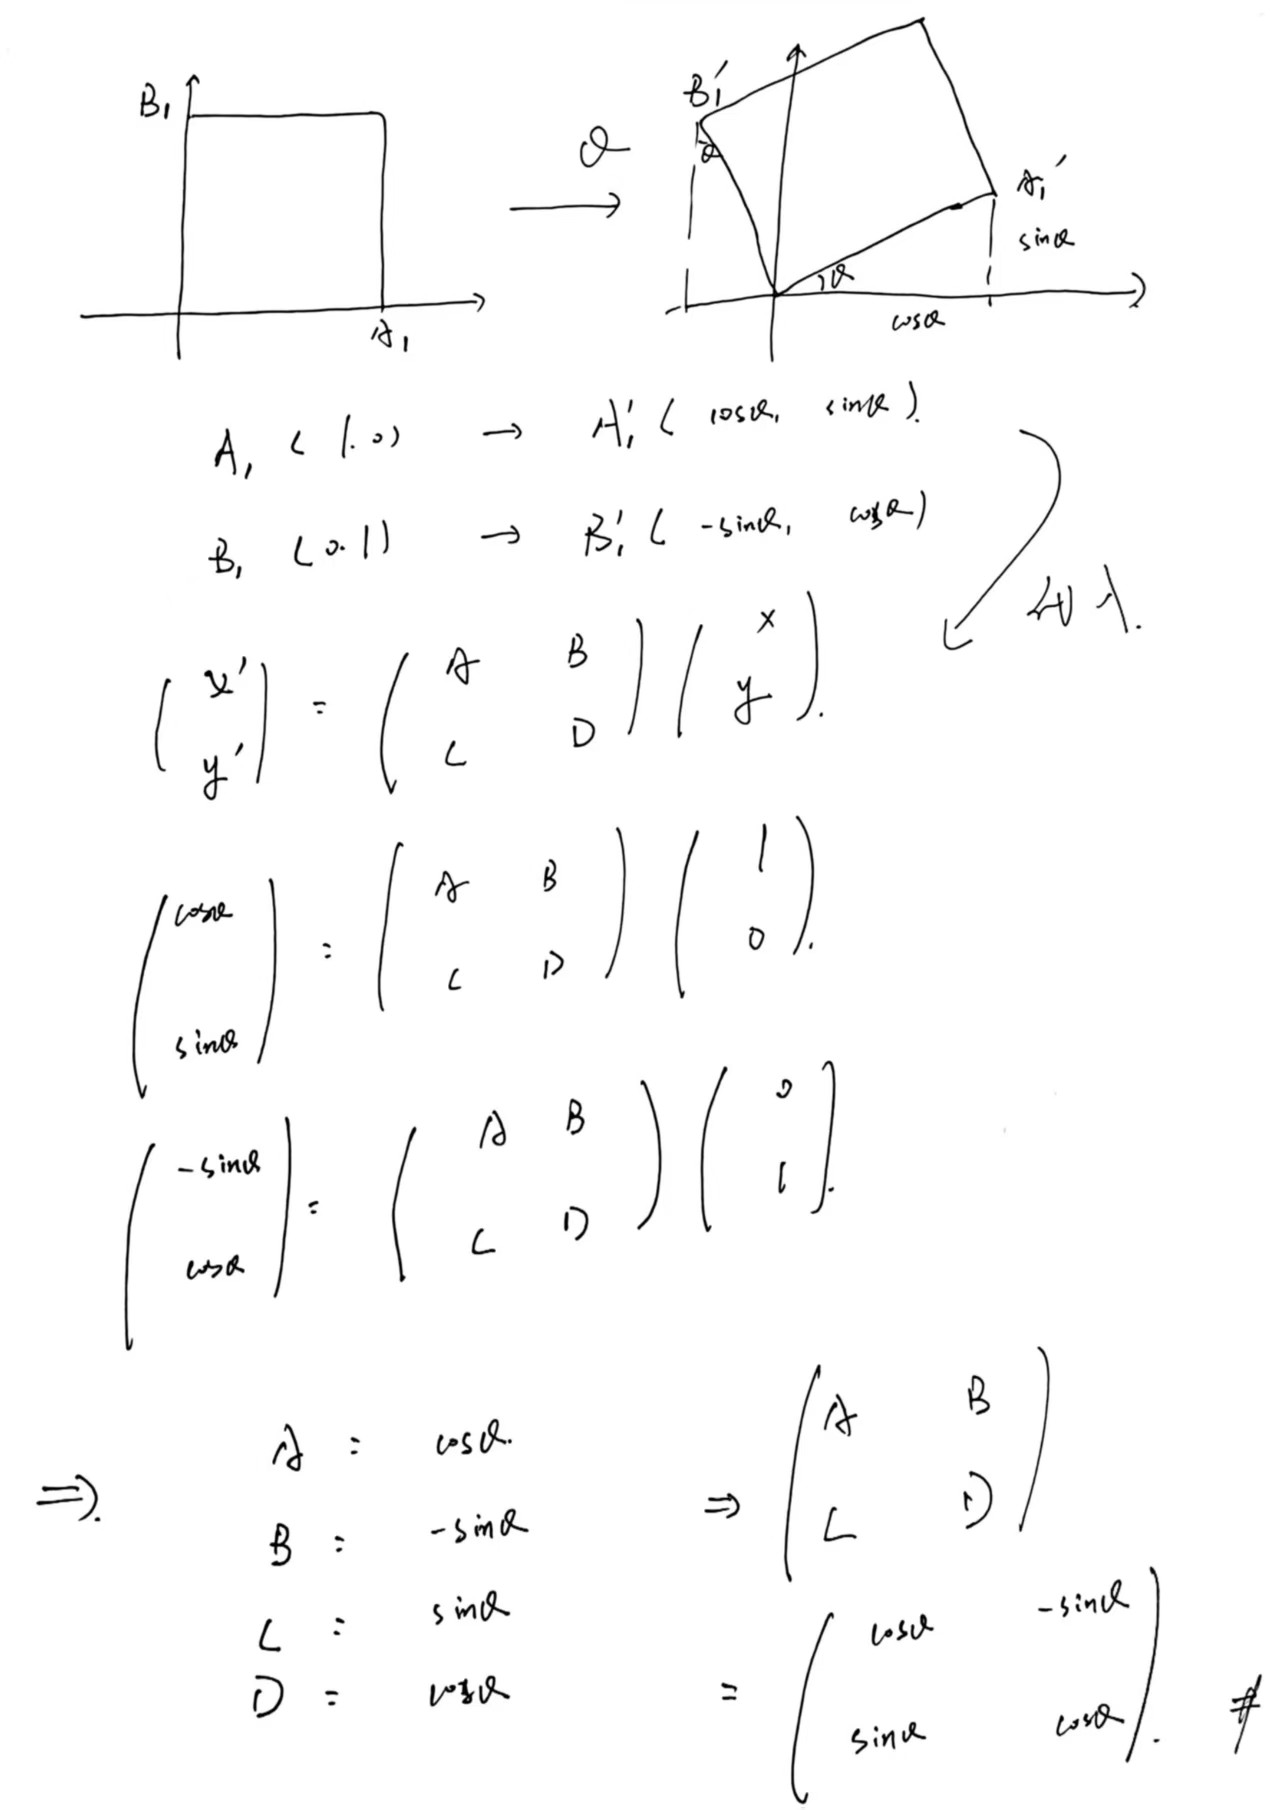 B₁
A₁
θ
→
B₁′
θ
A₁′
sinθ
θ
cosθ
A₁ (1.0) → A₁′ ( cosθ, sinθ ).
B₁ (0.1) → B₁′ ( -sinθ, cosθ)
代入.
( x′ y′ ) = ( A B C D ) ( x y ).
( cosθ sinθ ) = ( A B C D ) ( 1 0 ).
( -sinθ cosθ ) = ( A B C D ) ( 0 1 ).
⇒. A = cosθ.
B = -sinθ
C = sinθ
D = cosθ
⇒ ( A B C D )
= ( cosθ -sinθ sinθ cosθ ). #